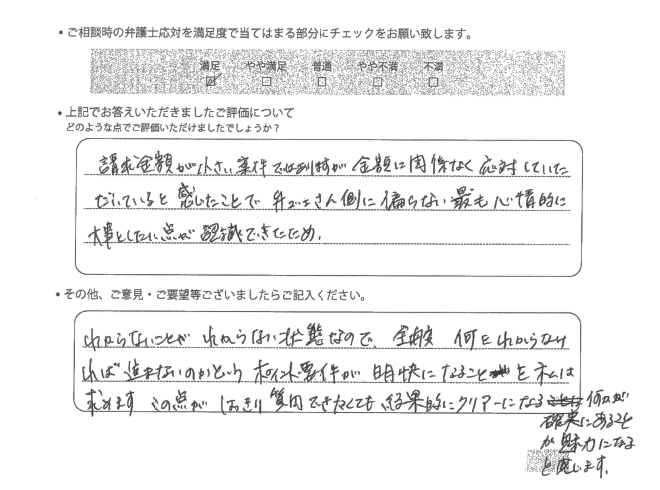 ・ご相談時の弁護士応対を満足度で当てはまる部分にチェックをお願い致します。
満足 やや満足 普通 やや不満 不満
☑ □ □ □ □
・上記でお答えいただきましたご評価について
どのような点でご評価いただけましたでしょうか？
請求金額が小さい案件ではありますが 金額に関係なく 応対していた
だいていると感じたことで 弁ゴ士さん側に偏らない最も心情的に
大事としたい点が 認識できたため.
・その他、ご意見・ご要望等ございましたらご記入ください。
わからないことが わからない状態なので、全般 何をわからなけ
れば 進めないのかという ポイント要件が 明快になること を私は
求めます この点が はっきり質問できなくても 結果的にクリアーになる 何かが
確実にあること
が魅力になる
と感じます.